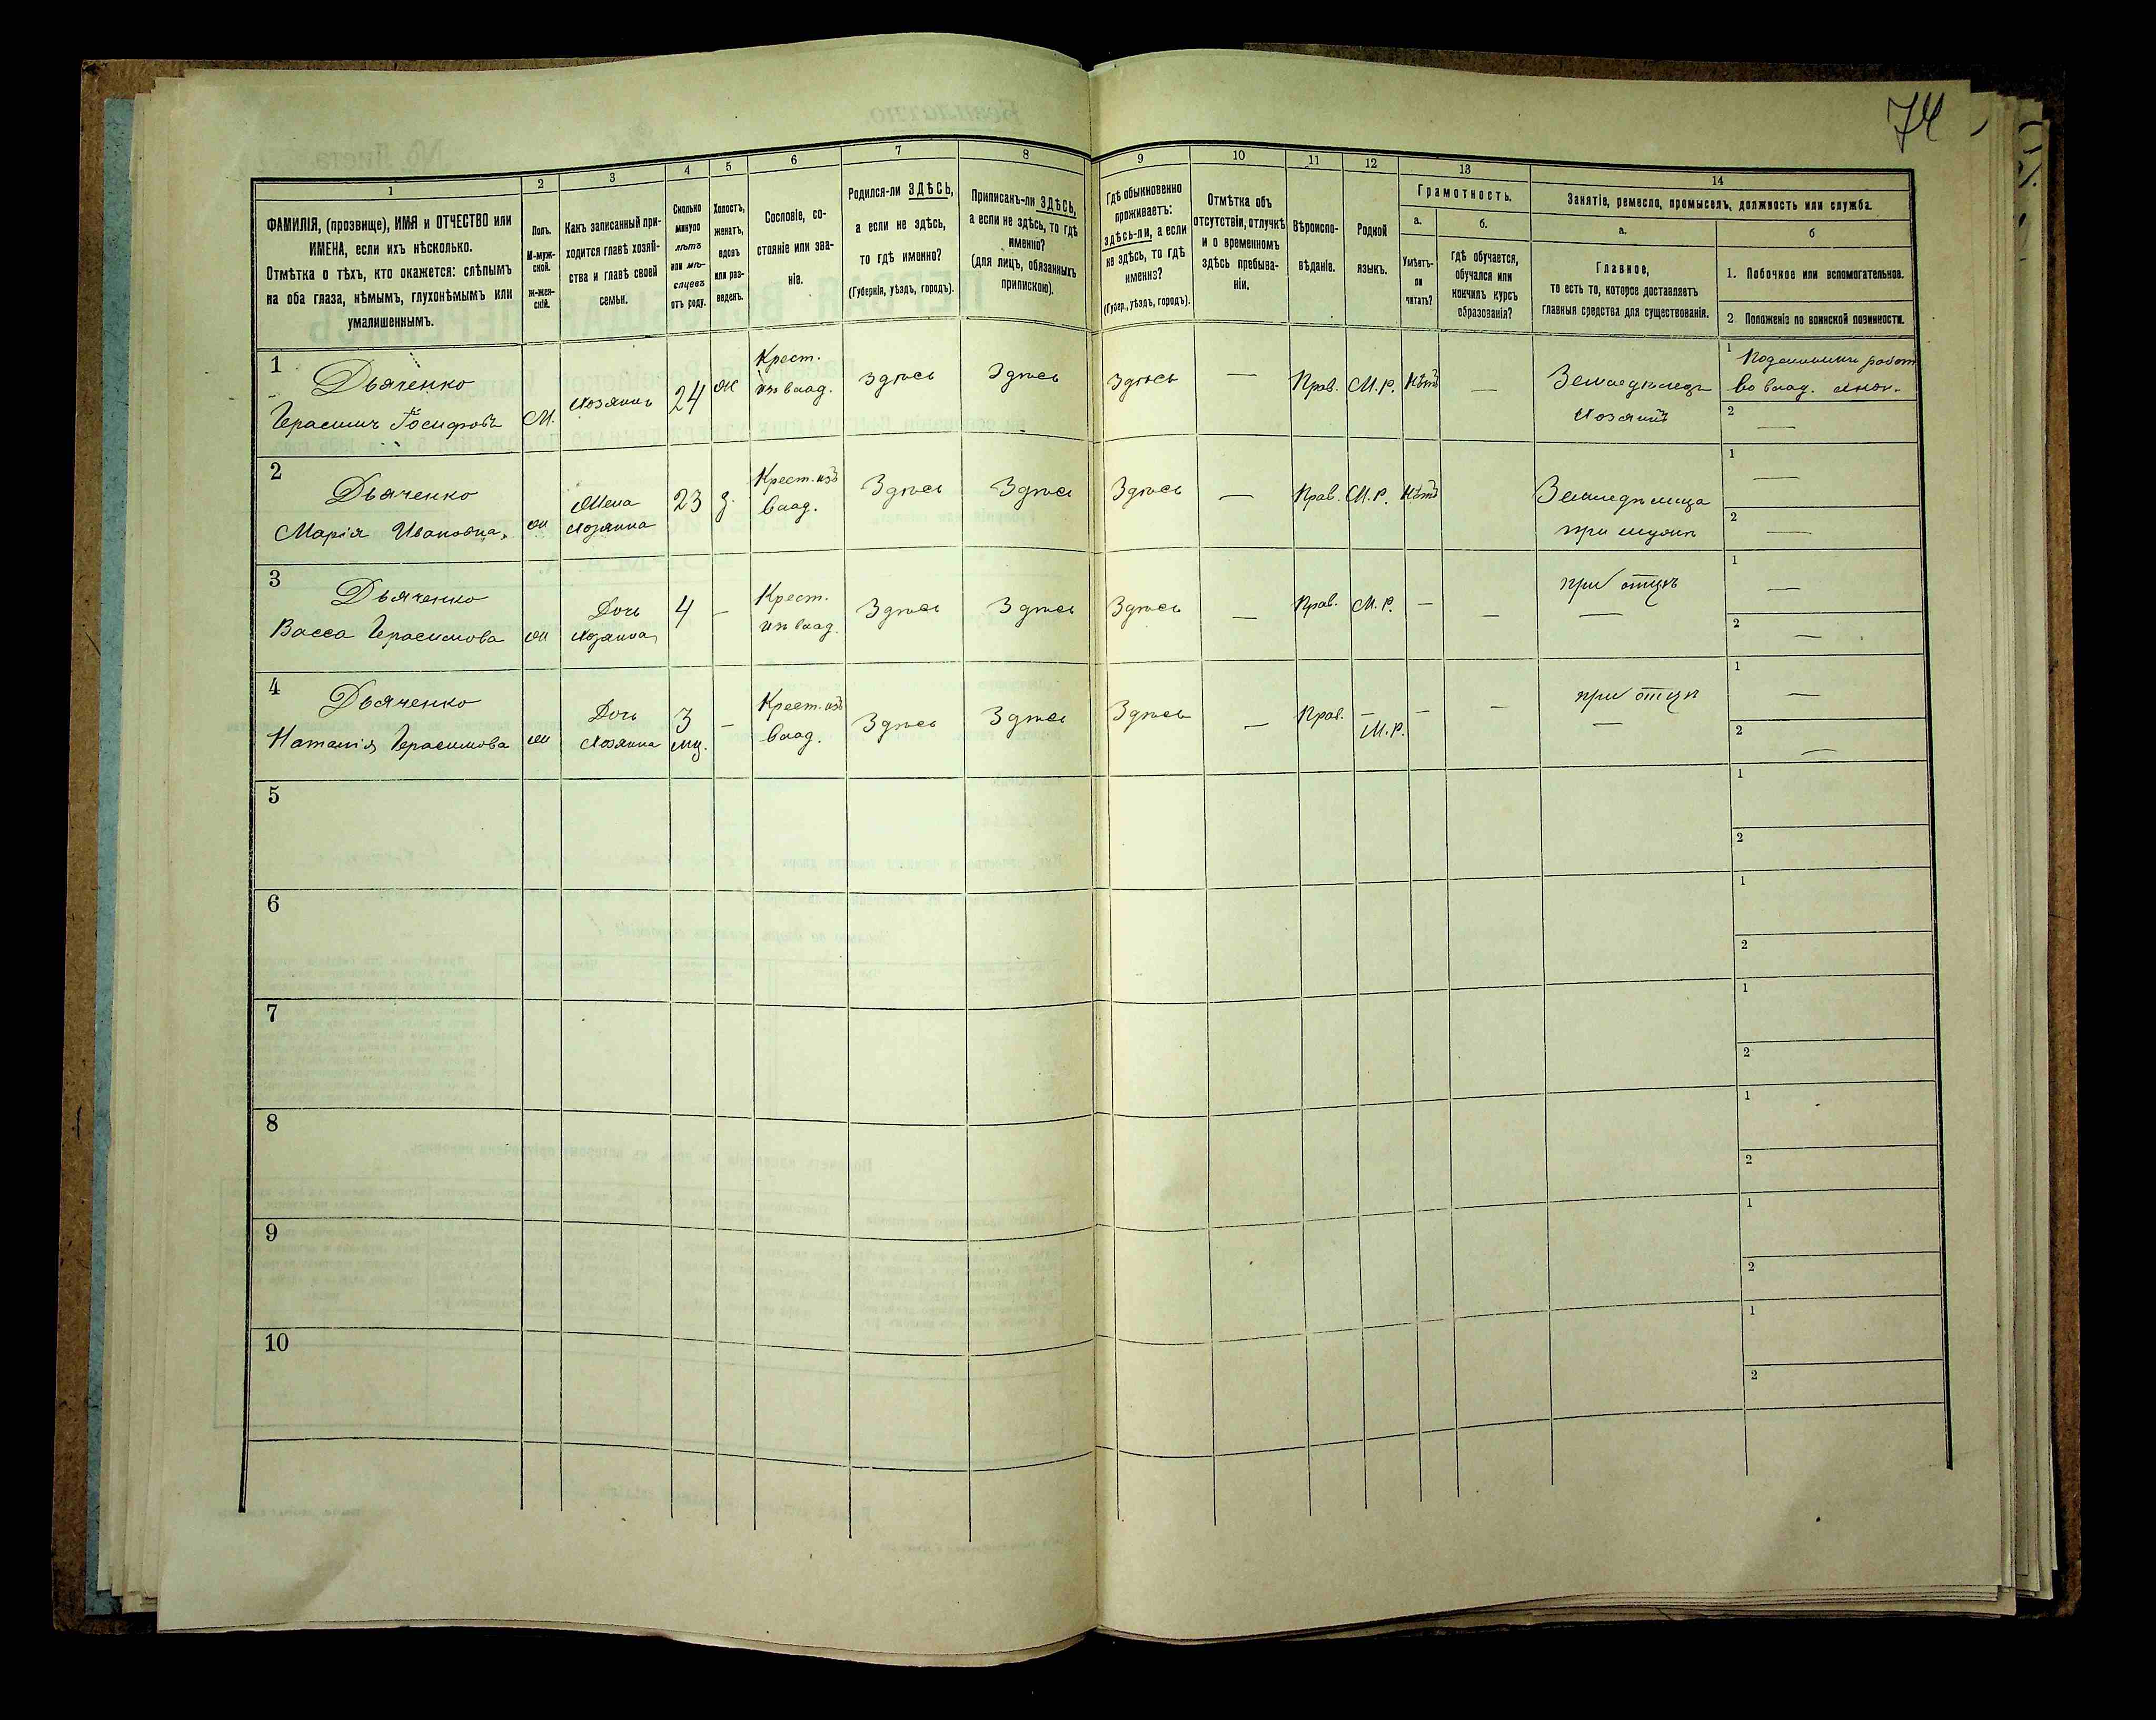 74
1
2
3
4
5
6
7
8
9
10
11
12
13
14
ФАМИЛІЯ, (прозвище), ИМЯ и ОТЧЕСТВО или
ИМЕНА, если ихъ нѣсколько.
Отмѣтка о тѣхъ, кто окажется: слѣпымъ
на оба глаза, нѣмымъ, глухонѣмымъ или
умалишеннымъ.
Полъ.
М-муж-
ской.
Ж-жен-
скій.
Какъ записанный при-
ходится главѣ хозяй-
ства и главѣ своей
семьи.
Сколько
минуло
лѣтъ
или мѣ-
сяцевъ
отъ роду.
Холостъ,
женатъ,
вдовъ
или раз-
веденъ.
Сословіе, со-
стояніе или зва-
ніе.
Родился-ли ЗДѢСЬ,
а если не здѣсь,
то гдѣ именно?
(Губернія, уѣздъ, городъ).
Приписанъ-ли ЗДѢСЬ,
а если не здѣсь, то гдѣ
именно?
(для лицъ, обязанныхъ
припискою).
Гдѣ обыкновенно
проживаетъ:
здѣсь-ли, а если
не здѣсь, то гдѣ
именно?
(Губер., уѣздъ, городъ).
Отмѣтка объ
отсутствіи, отлучкѣ
и о временномъ
здѣсь пребыва-
ніи.
Вѣроиспо-
вѣданіе.
Родной
языкъ.
Грамотность.
а.
Умѣетъ-
ли
читать?
б.
гдѣ обучается,
обучался или
кончилъ курсъ
образованія?
Занятіе, ремесло, промыселъ, должность или служба.
а.
Главное,
то есть то, которое доставляетъ
главныя средства для существованія.
б
1. Побочное или вспомогательное.
2. Положеніе по воинской повинности.
1
Дьяченко
Герасимъ Іосифовъ
М.
Хозяинъ
24
ж
Крест.
изъ влад.
Здѣсь
Здѣсь
Здѣсь
—
Прав.
М.Р.
Нѣтъ
—
Земледѣлецъ
Хозяинъ
1
во влад. экон.
2
—
2
Дьяченко
Марія Ивановна,
ж
Жена
Хозяина
23
з.
Крест. изъ
влад.
Здѣсь
Здѣсь
Здѣсь
—
Прав.
М.Р.
Нѣтъ
Земледѣлица
при мужѣ
1
—
2
—
3
Дьяченко
Васса Герасимова
ж
Дочь
Хозяина
4
—
Крест.
изъ влад.
Здѣсь
Здѣсь
Здѣсь
—
Прав.
М.Р.
—
—
при отцѣ
—
1
—
2
—
4
Дьяченко
Наталія Герасимова
ж
Дочь
Хозяина
3
мц.
—
Крест. изъ
влад.
Здѣсь
Здѣсь
Здѣсь
—
Прав.
—
М.Р.
—
—
при отцѣ
—
1
—
2
—
5
1
2
6
1
2
7
1
2
8
1
2
9
1
2
10
1
2